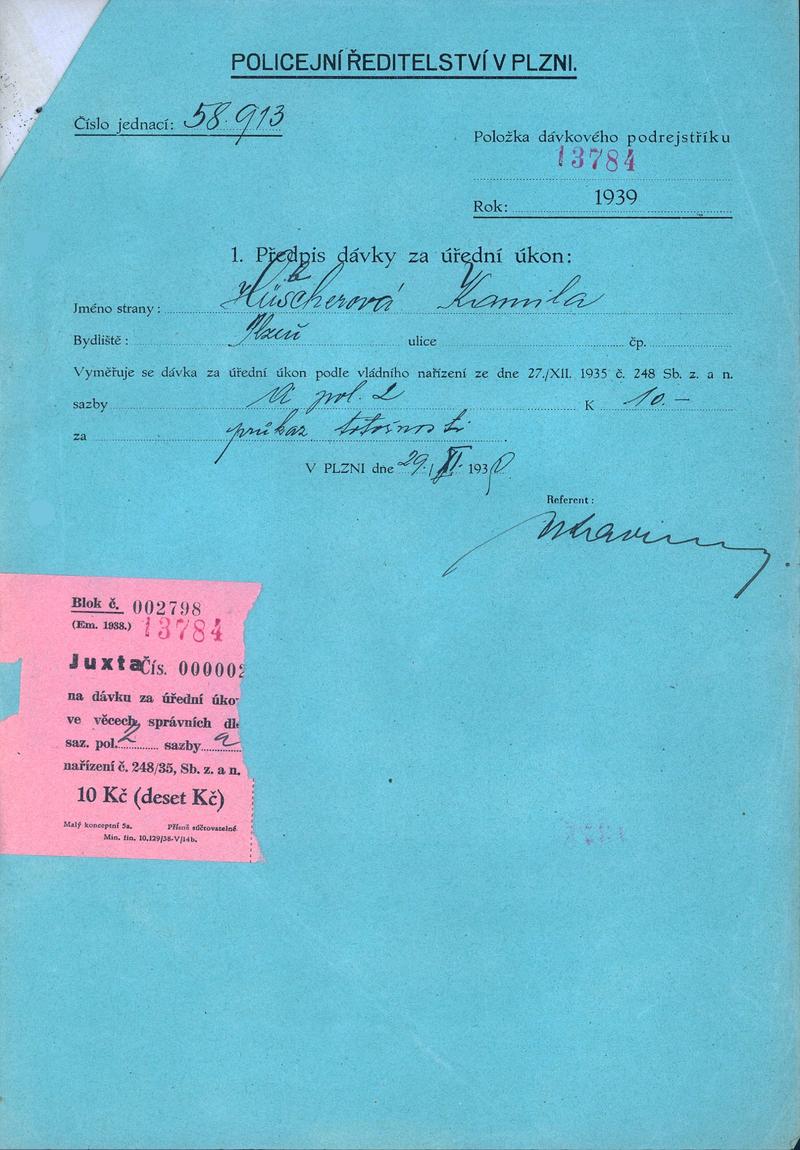 POLICEJNÍ ŘEDITELSTVÍ V PLZNI.
Číslo jednací: 58.913
Položka dávkového podrejstříku
13784
Rok: 1939
1. Předpis dávky za úřední úkon:
Jméno strany: Kamila
Bydliště: Plzeň ulice čp.
Vyměřuje se dávka za úřední úkon podle vládního nařízení ze dne 27./XII. 1935 č. 248 Sb. z. a n.
sazby A pol. 2 K 10.–
za průkaz totožnosti
V PLZNI dne 29./XI. 1939
Referent:
Blok č. 002798
(Em. 1938.) 13784
Juxta Čís. 000002
na dávku za úřední úko
ve věcech správních dle
saz. pol. 2 sazby a
nařízení č. 248/35, Sb. z. a n.
10 Kč (deset Kč)
Malý konceptní 5a. Přísně súčtovatelné
Min. fin. 10.129/38-V/14b.